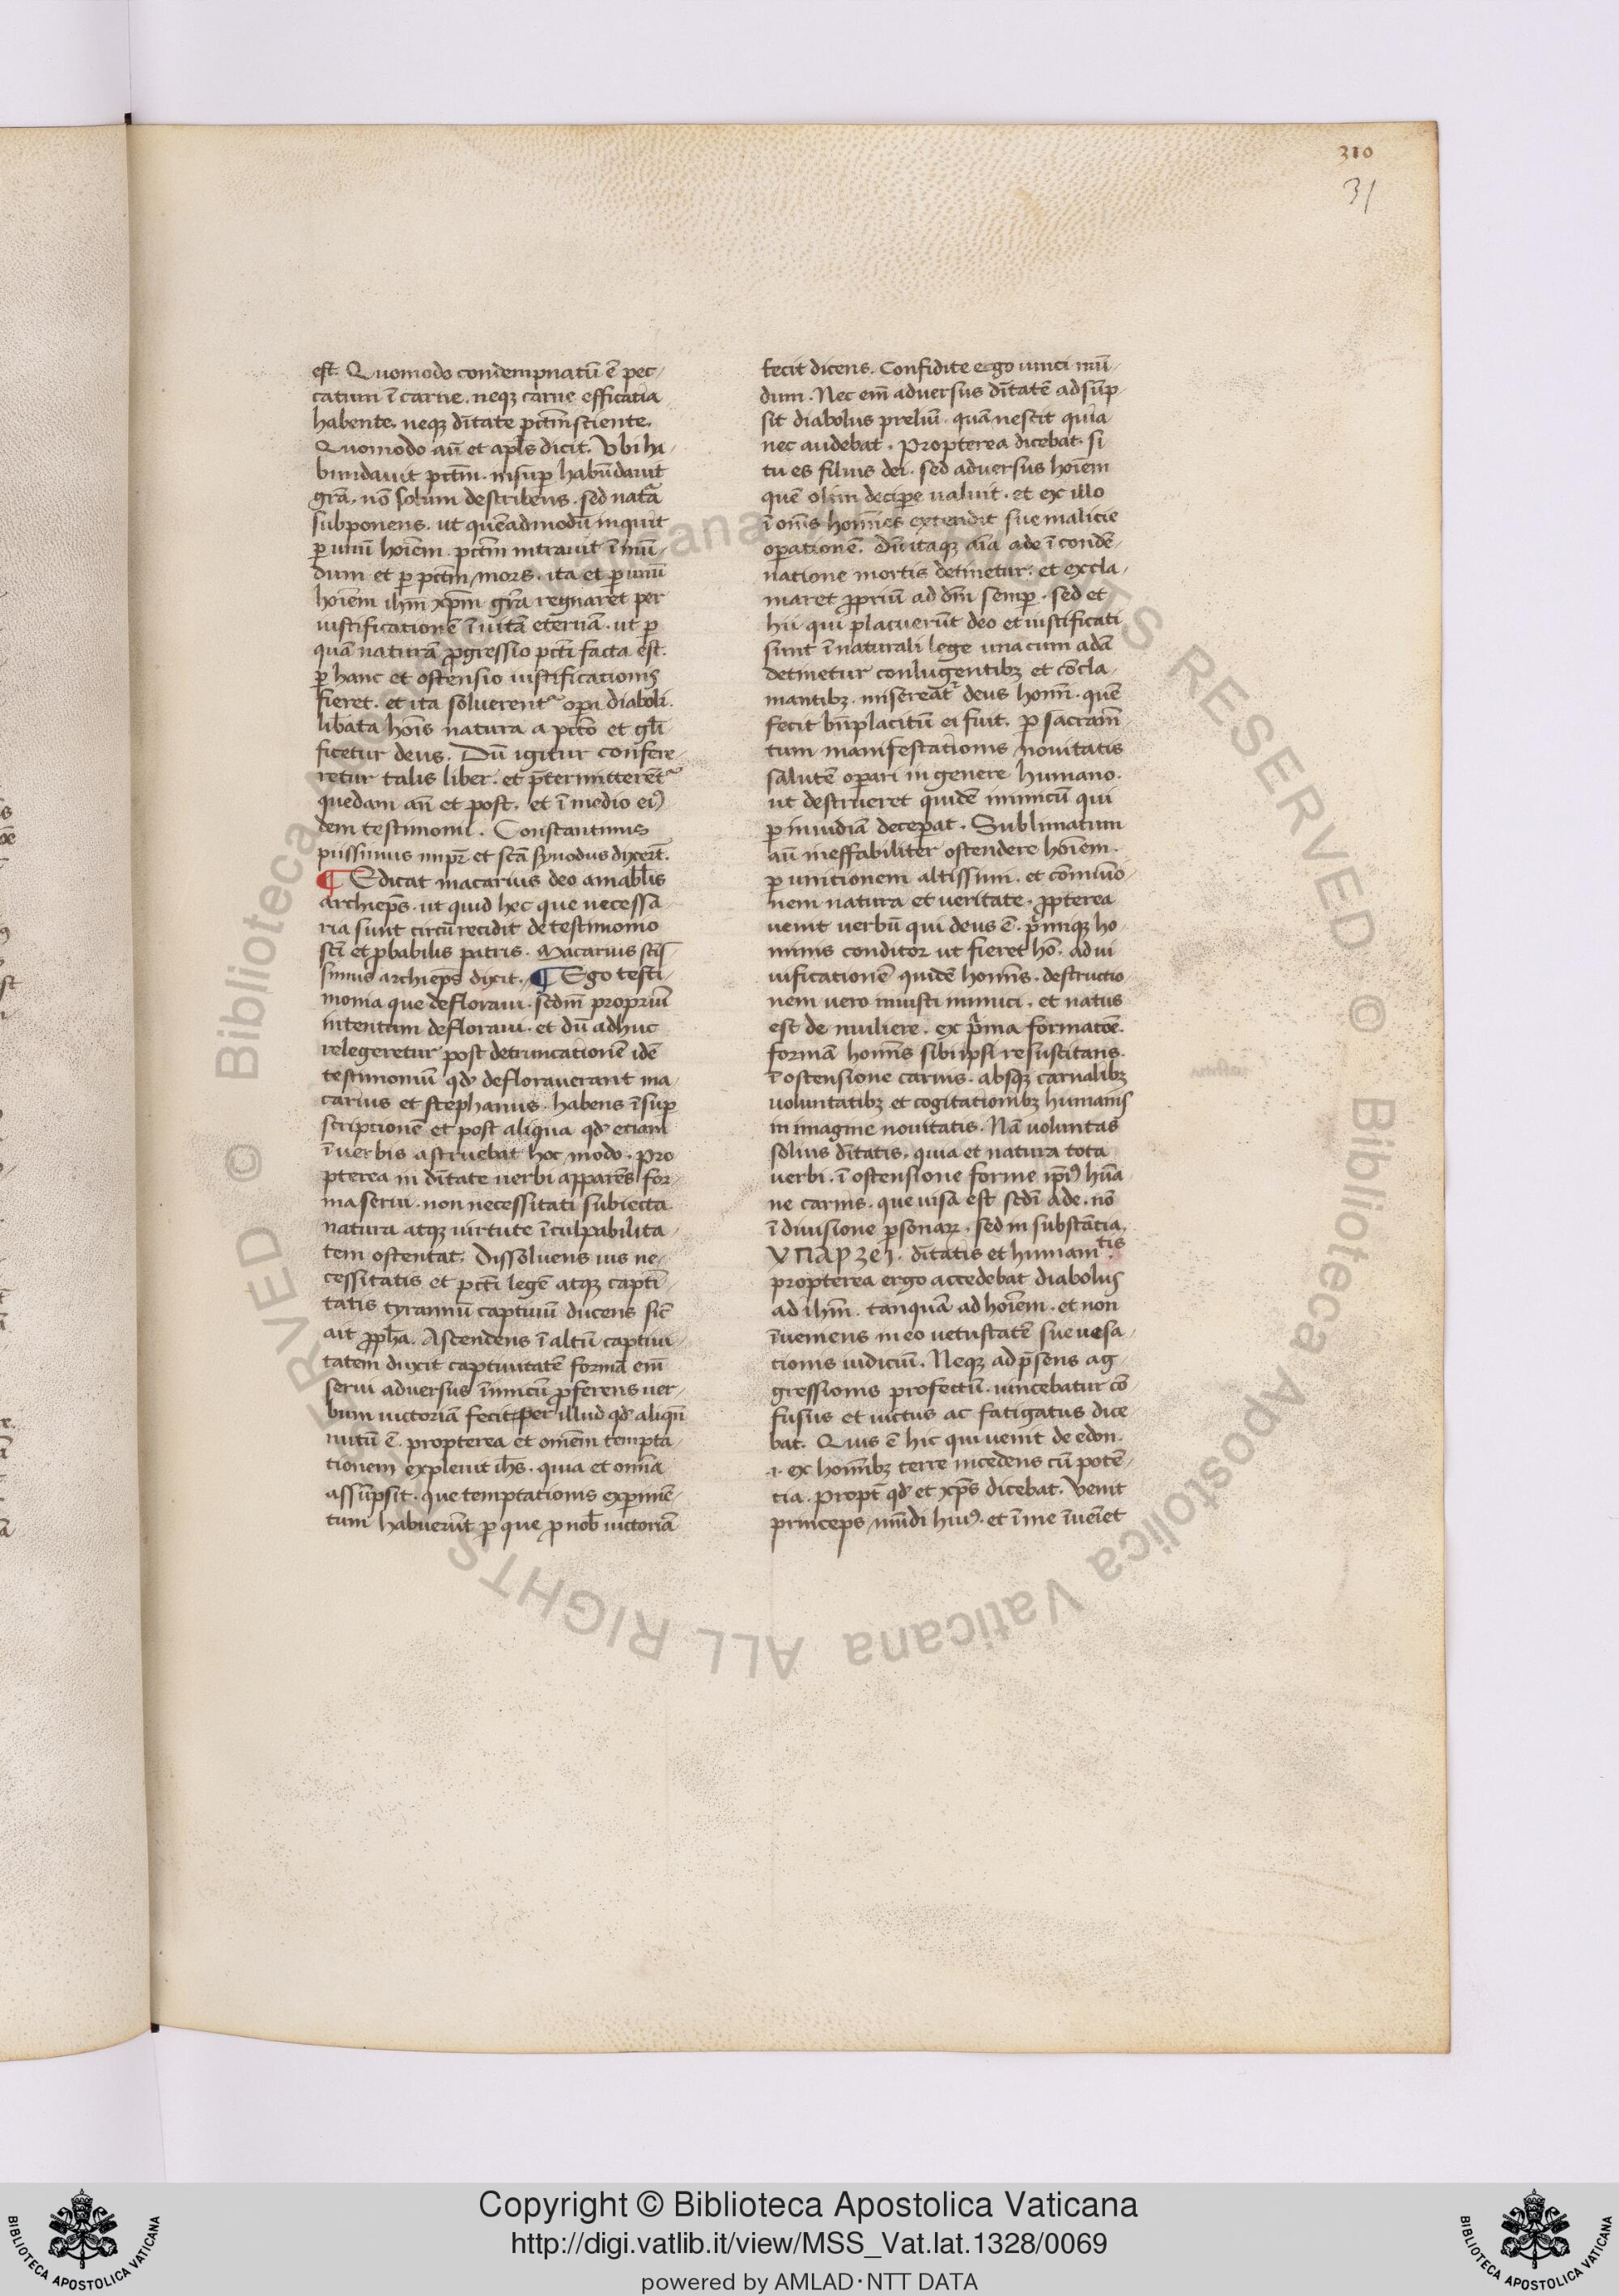 310
31
est. Quomodo condempnatū ē pec-
catum ī carne. neqz carne efficatia
habente. neqz dītate pctm̄ sciente.
Quomodo aū et apls dicit. Vbi ha-
bundauit pctm̄. insuꝑ habūdauit
grā. nō solum describens. sed natrā
subponens. ut quēadmodū inquit
ꝑ unū hoīem. pctm̄ intrauit ī mū-
dum et ꝑ pctm̄ mors. ita et ꝑ unū
hoīem ihm̄ xp̄m grā regnaret per
iustificationē ī uitā eternā. ut ꝑ
quā naturā ꝓgressio pcti facta est.
ꝑ hanc et ostensio iustificationis
fieret. et ita soluerent᷑ oꝑa diaboli.
libata hoīs natura a pctō et glī-
ficetur deus. Dū igitur confere-
retur talis liber. et p̄termitterēt᷑
quedam an̄ et post. et ī medio eiꝰ
dem testimonii. Constantinus
piissimus impr̄ et scā synodus dixerт̄.
¶ Edicat macarius deo amablis
archiep̄s. ut quid hec que necessa-
ria sunt circūrecidit de testimonio
scī et ꝓbabilis patris. Macarius scīs-
simus archiep̄s dixit. ¶ Ego testi-
monia que defloraui. scdm̄ propriū
intentum defloraui. et dū adhuc
relegeretur post detruncationē idē
testimoniū qd̓ deflorauerant ma-
carius et stephanus. habens īsuꝑ
scriptionē et post aliqua qd̓ etiam
ī uerbis astruebat hoc modo. Pro
pterea in dītate uerbi apparēs for-
ma serui. non necessitati subiecta
natura atqz uirtute īculpabilita-
tem ostentat. Dissoluens ius ne-
cessitatis et pcti legē atqz capti-
tatis tyrannū captiuū ducens sic̄
ait ꝓpha. Ascendens ī altū captiui-
tatem duxit captiuitatē forma em̄
serui aduersus īimicū ꝓferens uer-
bum uictoriā fecit per illud qd̓ aliqn̄
uitū ē. propterea et omēm tempta-
tionem expleuit ihs̄. quia et omīa
assūpsit. que temptationis exꝑimē-
tum habuerūt ꝑ que ꝓ nob̄ uictoriā
fecit dicens. Confidite ergo uinci mū-
dum. Nec em̄ aduersus dītatē adsūp-
sit diabolus preliū. quā nescit quia
nec audebat. Propterea dicebat. si
tu es filius dei. sed aduersus hoīem
quē olim deciꝑe ualuit. et ex illo
ī om̄s homīes extendit sue malicie
oꝑationē. Dū itaqz aīa ade ī condē-
natione mortis detinetur. et excla-
maret ꝓpriū ad dm̄ semꝑ. sed et
hii qui placuerūt deo et iustificati
sunt ī naturali lege una cum adā
detinetur conlugentibz et cōcla-
mantibz. misereat᷑ deus homī. quē
fecit bn̄placitū ei fuit. ꝑ sacram̄-
tum manifestationis nouitatis
salutē oꝑari in genere humano.
ut destrueret quidē inimicū qui
ꝑ inuidiā deceꝑat. Sublimatum
aū ineffabiliter ostendere hoīem.
ꝑ unitionem altissimi. et cōmuio-
nem natura et ueritate. ꝓpterea
uenit uerbū qui deus ē. pͥmiqz ho-
minis conditor ut fieret hō. ad ui-
uificationē quidē homīs. destructio-
nem uero iniusti inimici. et natus
est de muliere. ex pͥma formatoē.
formā homīs sibi ipsi resuscitans.
ī ostensione carnis. absqz carnalibz
uoluntatibz et cogitationibz humanis
in imagine nouitatis. Nā uoluntas
solius dītatis. quia et natura tota
uerbi. ī ostensione forme ip̄iꝰ hūa-
ne carnis. que uisa est scdi ade. nō
ī diuisione ꝑsonaꝝ. sed in substātia.
ynapzei. dītatis et humani tis
propterea ergo accedebat diabolus
ad ihm̄. tanquā ad hoīem. et non
īueniens in eo uetustatē sue uesa-
tionis iudiciū. Neqz ad p̄sens ag-
gressionis profectū. uincebatur cō-
fusus et uictus ac fatigatus dice-
bat. Quis ē hic qui uenit de edon.
.i. ex homībz terre incedens cū potē-
tia. Propt̄ qd̓ et xp̄s dicebat. Venit
princeps mūdi huiꝰ. et ī me īueīet
Copyright © Biblioteca Apostolica Vaticana
http://digi.vatlib.it/view/MSS_Vat.lat.1328/0069
powered by AMLAD·NTT DATA
BIBLIOTECA APOSTOLICA VATICANA
BIBLIOTECA APOSTOLICA VATICANA